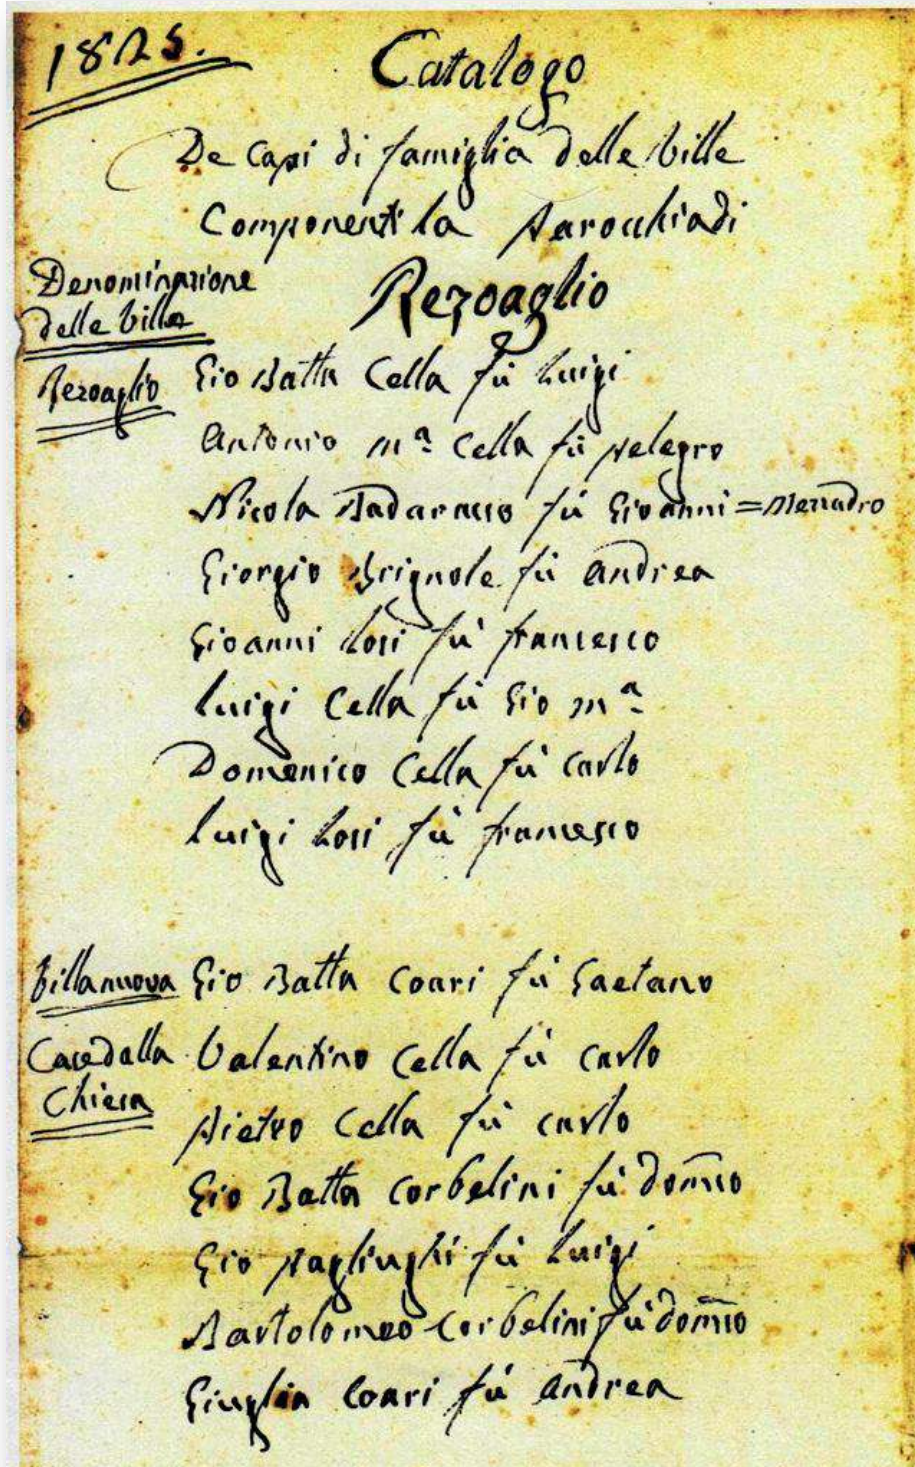 1825.
Catalogo
De Capi di famiglia delle ville
Componenti la Parochia di
Rezoaglio
Denominazione
delle ville
Rezoaglio
Gio Batta Cella fù Luigi
Antonio Mª Cella fù Pelegro
Nicola Badaracco fù Giovanni =
Giorgio Brignole fù Andrea
Gioanni Losi fù francesco
Luigi Cella fù Gio Mª
Domenico Cella fù Carlo
Luigi Losi fù francesco
Villanuova Gio Batta Coari fù Gaetano
Case dalla Valentino Cella fù Carlo
Chiesa
Pietro Cella fù Carlo
Gio Batta Corbelini fù Dom̃co
Gio Raglinghi fù Luigi
Bartolomeo Corbelini fù Dom̃co
Giuglia Coari fù Andrea